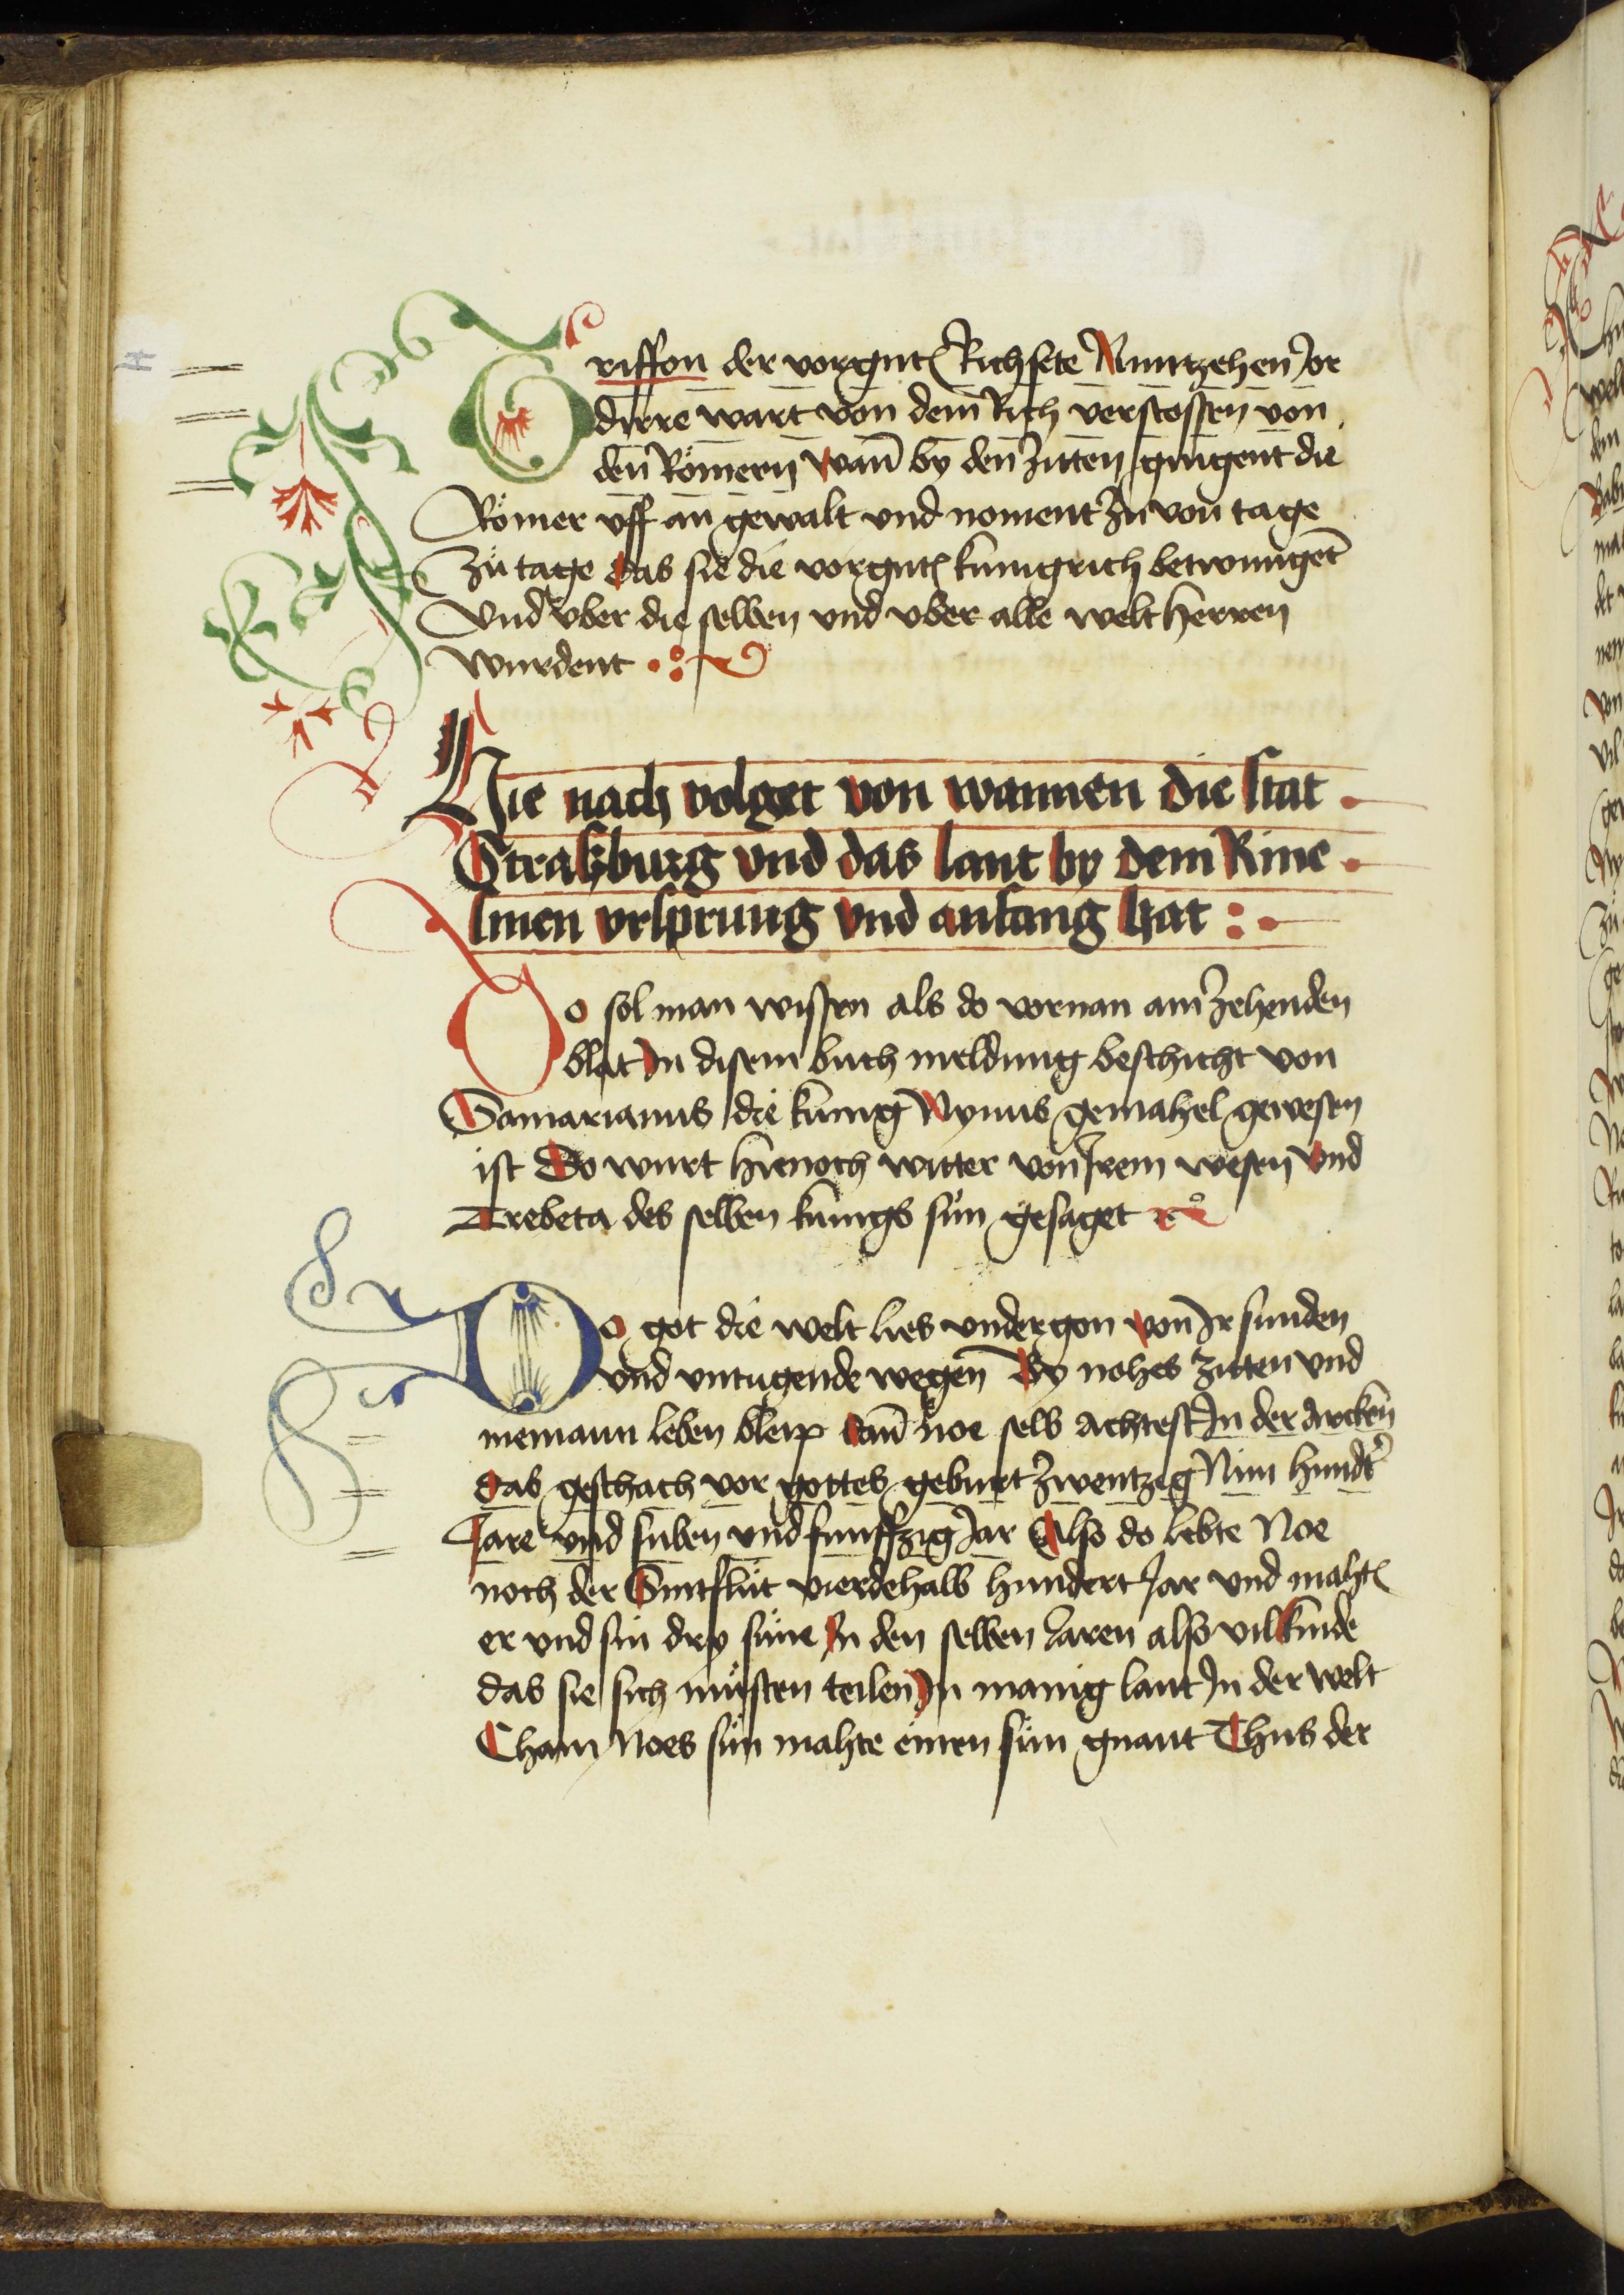 Griffon der vorgnt Richsete Nuntzehen Jor
dirre wart von dem Rich verstossen von
den Römern wañ by den Zitten gingent die
Römer vff an gewalt vnd noment Zü von tage
Zü tage das sie die vorgnt kunigrich betwungẽt
Vnd vber die selben vnd vber alle welt herren
wurdent
Hie nach volget von wannen die stat
Straßburg vnd das lant by dem Rine
sinen vrsprung vnd anfang hat
Do sol man wissen als do vornan am Zehenden
blat In disem buch meldung beschicht von
Samarianus die kunig Nynus gemahel gewesen
ist Do wurt hienoch witter von Irem wesen vnd
Trebeta des selben kunigs sün gesaget
Do got die welt lies vndergon von Ir sunden
vnd vntugende wegen By nohes Zitten vnd
niemann leben bleip dañ noe selb achtest In der Arcken
das geschach vor gottes geburt Zwentzig Nün hundt
Jare vnd siben vnd funffzig Jar Also do lebte Noe
noch der Sintflüt vierdehalb hundert Jar vnd maht
er vnd sin dry süne In den selben Jaren also vil kinde
das sie sich müsten teilen In manig lant In der welt
Cham Noes sün mahte einen sün gnant Chus der